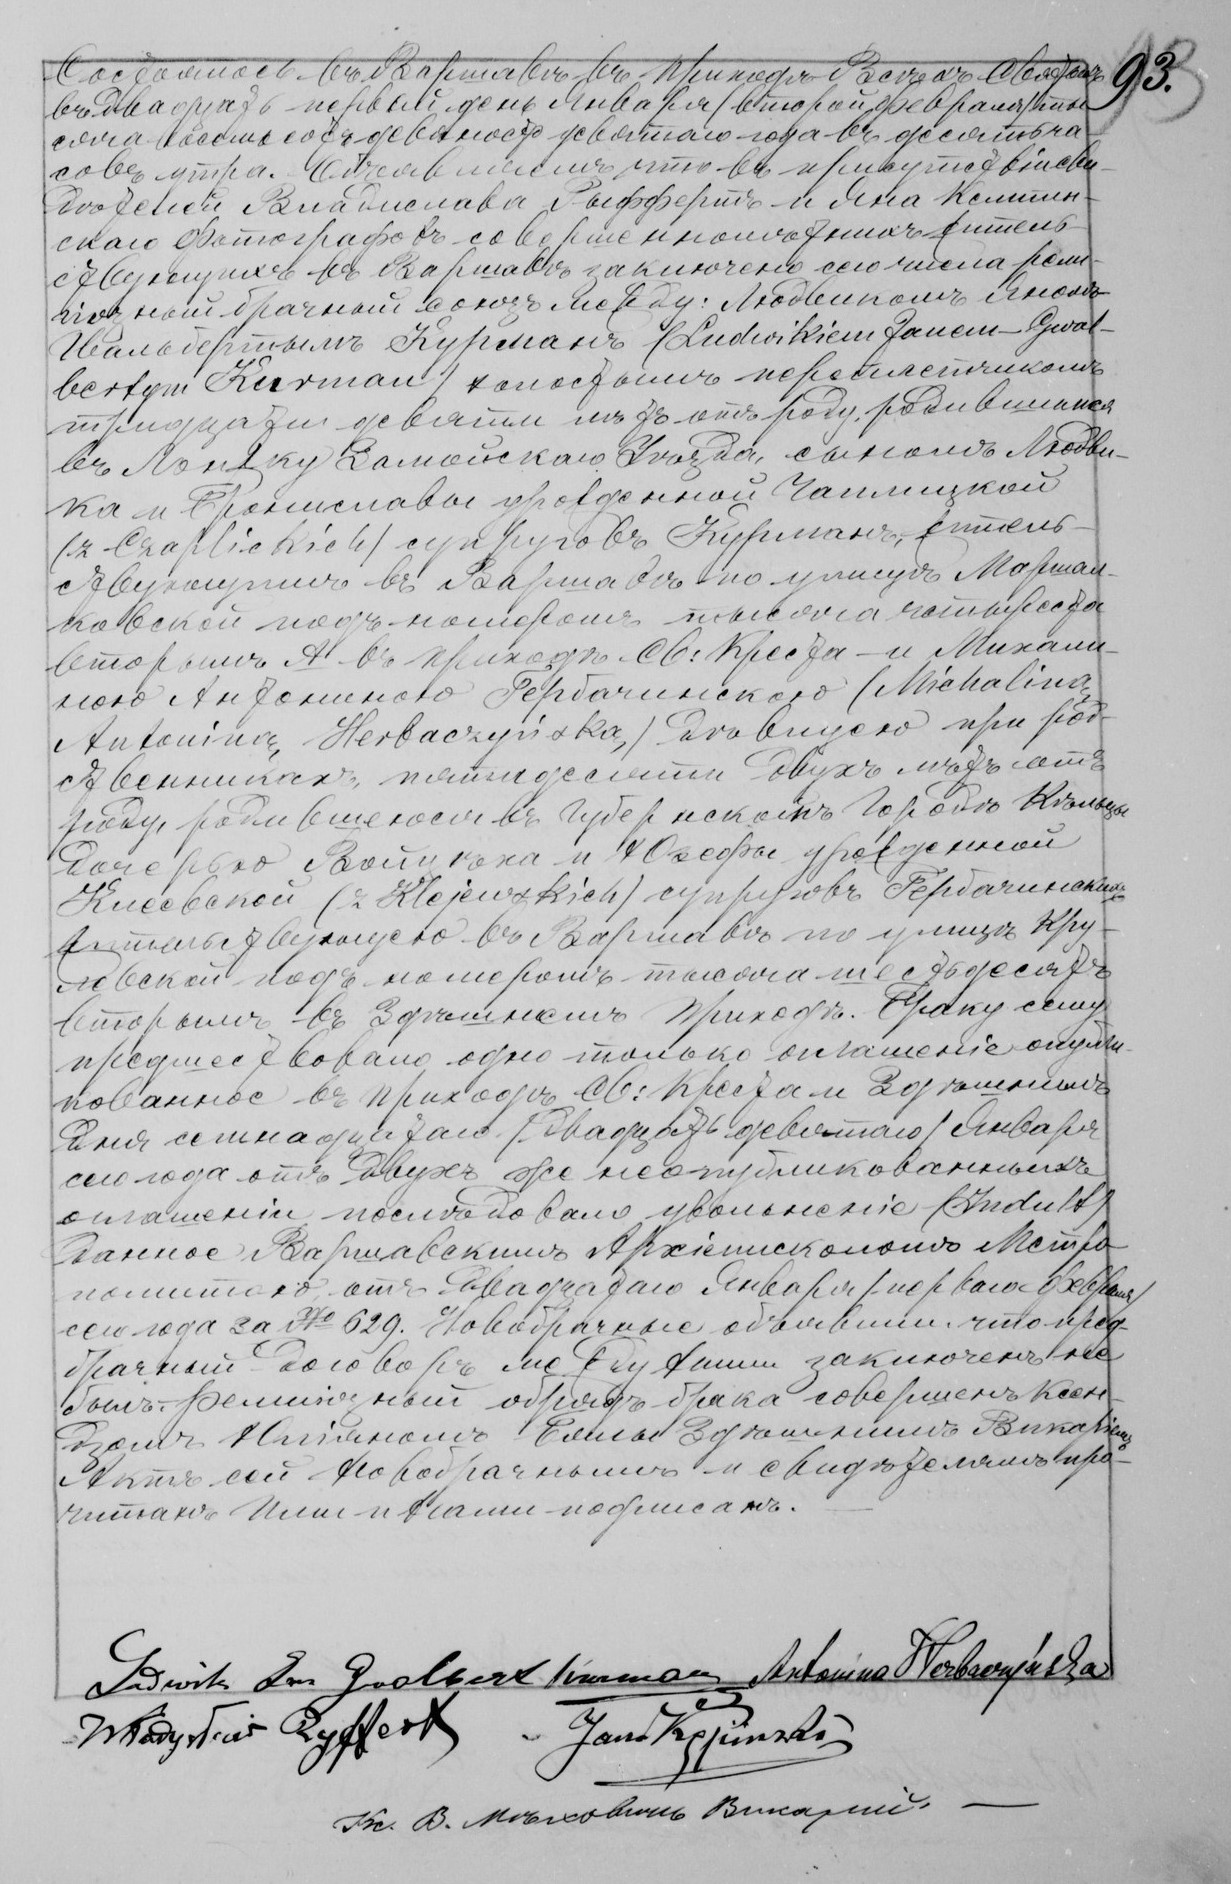 93.
Состоялось въ Варшавѣ въ приходѣ Всѣхъ Святыхъ
въ двадцать первый день Января/второй Февраля/ ты-
сяча восемьсотъ девяносто девятаго года въ десять ча-
совъ утра. Объявляемъ, что въ присутствіи сви-
дѣтелей Владислава Рыффертъ и Яна Кемпин-
скаго фотографовъ совершеннолѣтнихъ житель-
ствующихъ въ Варшавѣ заключенъ сего числа рели-
гіозный брачный союзъ между: Людвикомъ Яномъ
Гвальбертымъ Курманъ /Ludwikiem Janem Gwal-
bertym Kurman/ холостымъ переплетчикомъ
тридцати девяти лѣтъ отъ роду, родившимся
въ Замойскаго Уѣзда, сыномъ Людви-
ка и Брониславы урожденной Чаплицкой
/z Czaplickich/ супруговъ Курманъ, житель-
ствующимъ въ Варшавѣ по улицѣ Маршал-
ковской подъ номеромъ тысяча четыреста
вторымъ А въ приходѣ Св: Креста – и Михали-
ною Антониною Гербачинскою /Michaliną
Antoniną Herbaczyńską/ дѣвицею при род-
ственникахъ, пятидесяти двухъ лѣтъ отъ
роду, родившеюся въ Губернскомъ Городѣ Кѣльцы
дочерью Войцѣха и Юзефы урожденной
Клеевской /z Klejewskich/ супруговъ Гербачинскихъ
жительствующею въ Варшавѣ по улицѣ Кру-
левской подъ номеромъ тысяча шестьдесятъ
вторымъ въ здѣшнемъ приходѣ. Браку сему
предшествовало одно только оглашеніе опубли-
кованное въ приходѣ Св: Креста и Здѣшнемъ
дня семнадцатаго /двадцать девятаго/ Января
сего года отъ двухъ же неопубликованныхъ
оглашеній послѣдовало увольненіе /Indult/
данное Варшавскимъ Архіепископомъ Метро-
политомъ отъ двадцатаго Января/перваго Февраля/
сего года за № 629. Новобрачные объявили что пред-
брачный договоръ между ними заключенъ не
былъ. Религіозный обрядъ брака совершенъ Ксен-
дзомъ Юліяномъ Здѣшнимъ Викаріемъ
Актъ сей Новобрачнымъ и свидѣтелямъ про-
читанъ Ими и Нами подписанъ. —
Ludwik Jan Gwalbert Kurman Antonina Herbaczyńska
Władysław Ryffert Jan Kępiński
Кс. В. Мѣховичъ Викарій. —